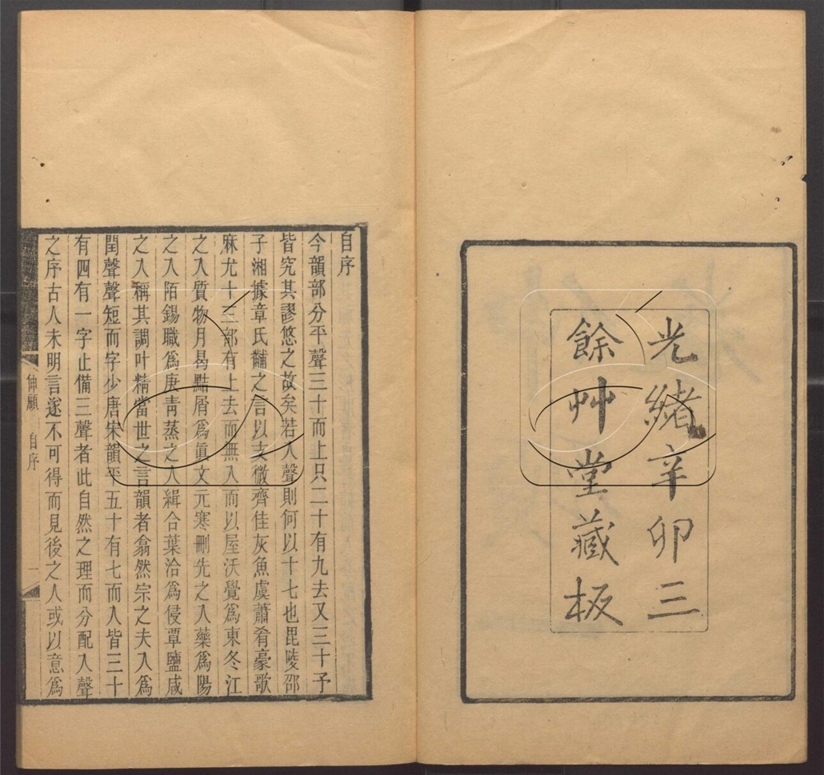 光緒辛卯三
餘艸堂藏板
自序
今韻部分平聲三十而上只二十有九去又三十予
皆究其謬悠之故矣若入聲則何以十七也毘陵邵
子湘據章氏黼之言以支微齊佳灰魚虞蕭肴豪歌
麻尤十三部有上去而無入而以屋沃覺爲東冬江
之入質物月曷黠屑爲眞文元寒刪先之入藥爲陽
之入陌錫職爲庚靑蒸之入緝合葉洽爲侵覃鹽咸
之入稱其調叶精當世之言韻者翕然宗之夫入爲
閏聲聲短而字少唐宋韻平五十有七而入皆三十
有四有一字止備三聲者此自然之理而分配入聲
之序古人未明言遂不可得而見後之人或以意爲
伸顧 自序 一